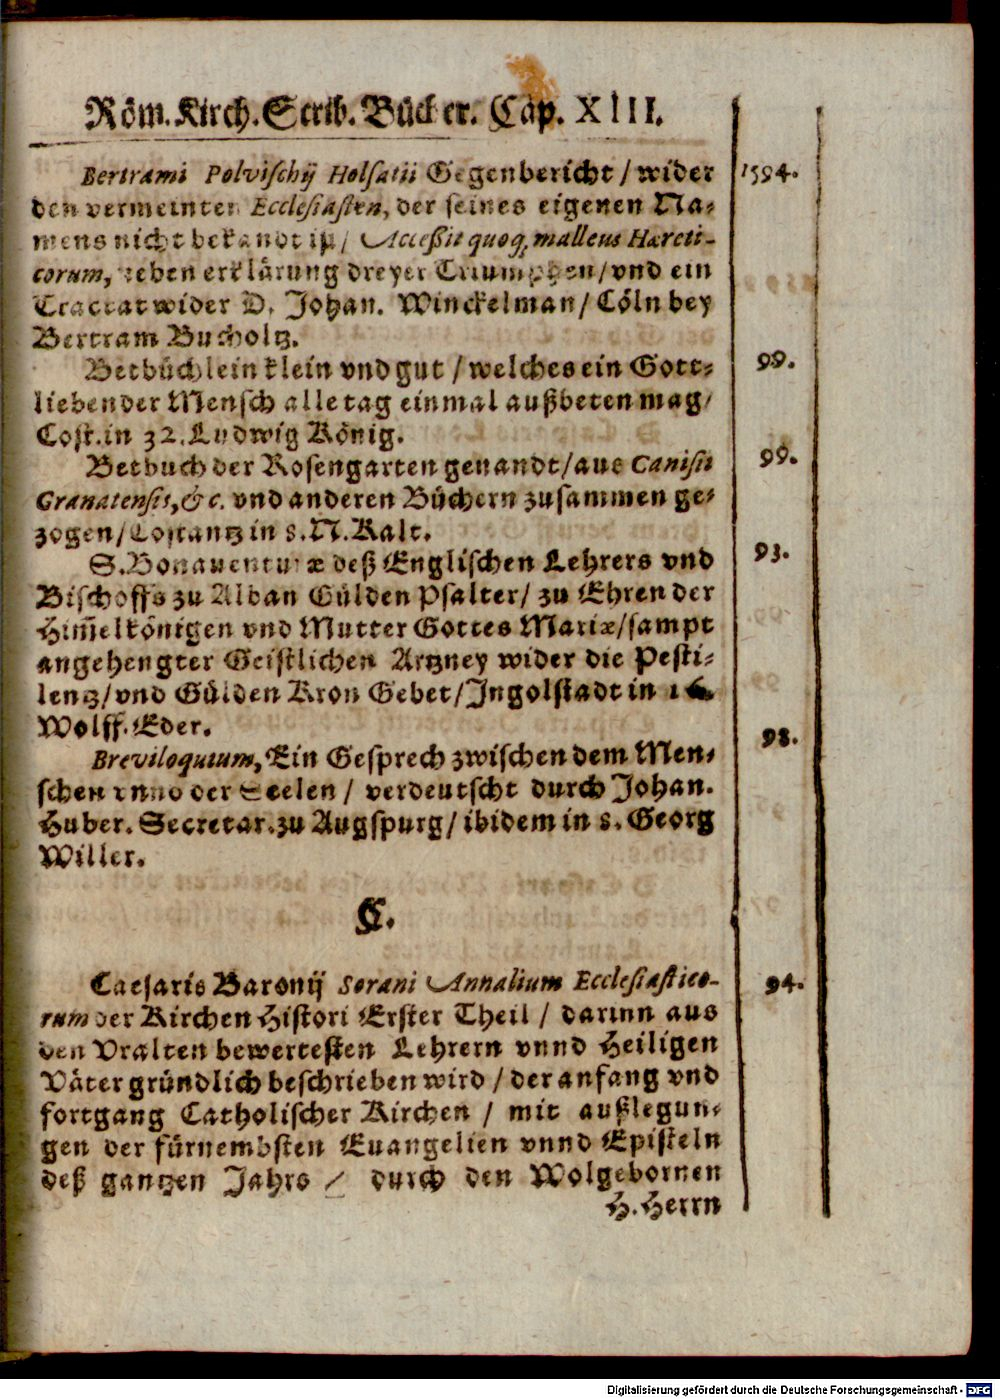 Röm. Kirch. Scrib. Bücher. Cap. XIII.
Bertrami Polvischij Holsatii Gegenbericht / wider 1594.
den vermeinten Ecclesiasten, der seines eigenen Na-
mens nicht bekandt ist / Accessit quoq; malleus Hæreti-
corum, neben erklärung dreyer Triumphen / vnd ein
Tractat wider D. Johan. Winckelman / Cöln bey
Bertram Bucholtz.
Betbüchlein klein vnd gut / welches ein Gott- 99.
liebender Mensch alle tag einmal außbeten mag /
Cost. in 32. Ludwig König.
Betbuch der Rosengarten genandt / aus Canisii 99.
Granatensis, &c. vnd anderen Büchern zusammen ge-
zogen / Costantz in 8. N. Kalt.
S. Bonauenturæ deß Englischen Lehrers vnd 93.
Bischoffs zu Alban Gülden Psalter / zu Ehren der
Him̃elkönigen vnd Mutter Gottes Mariæ / sampt
angehengter Geistlichen Artzney wider die Pesti-
lentz / vnd Gülden Kron Gebet / Ingolstadt in 16.
Wolff. Eder.
Breviloquium, Ein Gesprech zwischen dem Men- 98.
schen vnnd der Seelen / verdeutscht durch Johan.
Huber. Secretar. zu Augspurg / ibidem in 8. Georg
Willer.
C.
Caesaris Baronij Sorani Annalium Ecclesiastico- 94.
rum der Kirchen Histori Erster Theil / darinn aus
den Vralten bewertesten Lehrern vnnd Heiligen
Väter gründlich beschrieben wird / der anfang vnd
fortgang Catholischer Kirchen / mit außlegun-
gen der fürnembsten Euangelien vnnd Episteln
deß gantzen Jahrs / durch den Wolgebornen
H. Herrn
Digitalisierung gefördert durch die Deutsche Forschungsgemeinschaft - DFG